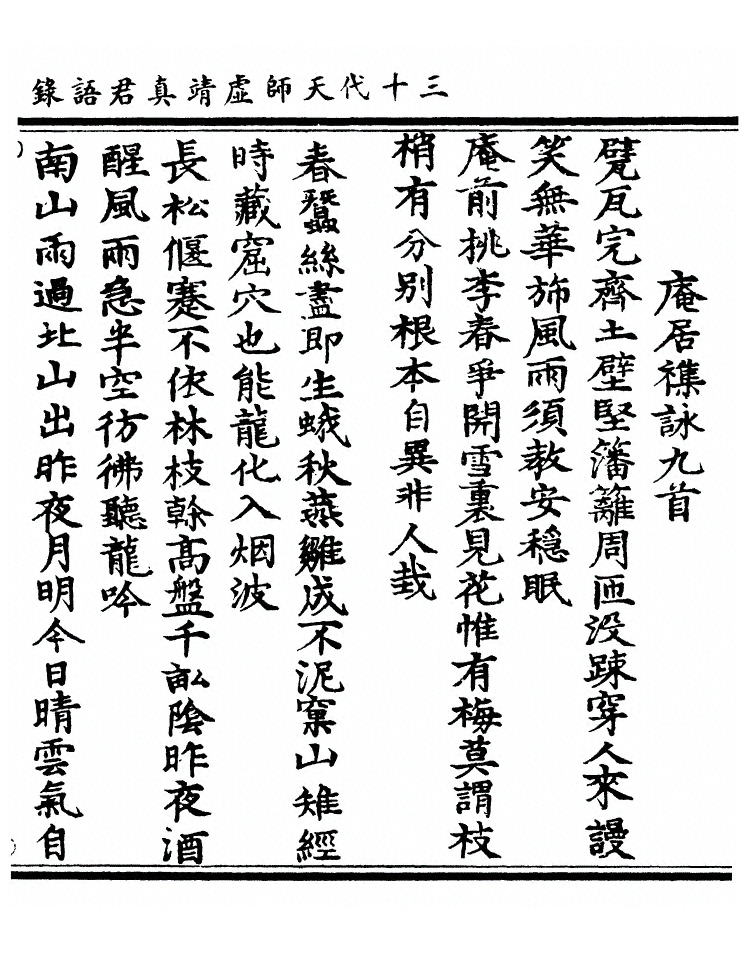 三十代天師虛靖真君語錄
庵居襍詠九首
甓瓦完齊土壁堅籓籬周匝没踈穿人來謾
笑無華餙風雨須教安穩眠
庵前桃李春爭開雪裏見花惟有梅莫謂枝
梢有分别根本自異非人栽
春蠶絲盡即生蛾秋燕雛成不泥窠山雉經
時藏窟穴也能龍化入烟波
長松偃蹇不依林枝榦高盤千畝陰昨夜酒
醒風雨急半空彷彿聽龍吟
南山雨過北山出昨夜月明今日晴雲氣自